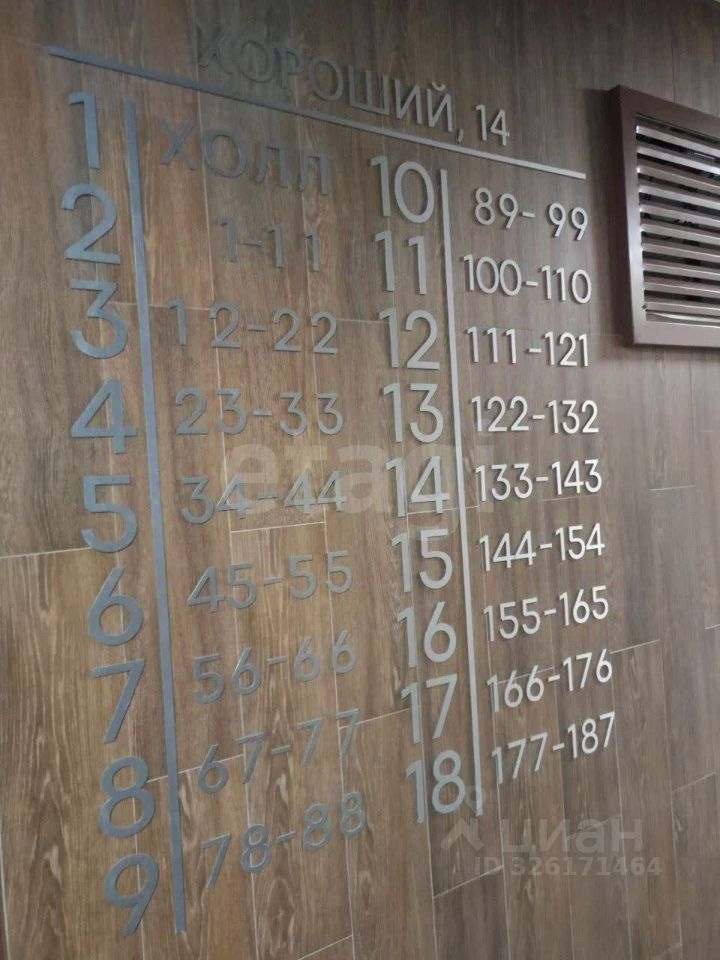 ХОРОШИЙ, 14
1 ХОЛЛ
2 1-11
3 12-22
4 23-33
5 34-44
6 45-55
7 56-66
8 67-77
9 78-88
10 89-99
11 100-110
12 111-121
13 122-132
14 133-143
15 144-154
16 155-165
17 166-176
18 177-187
etagi
циан
ID 326171464